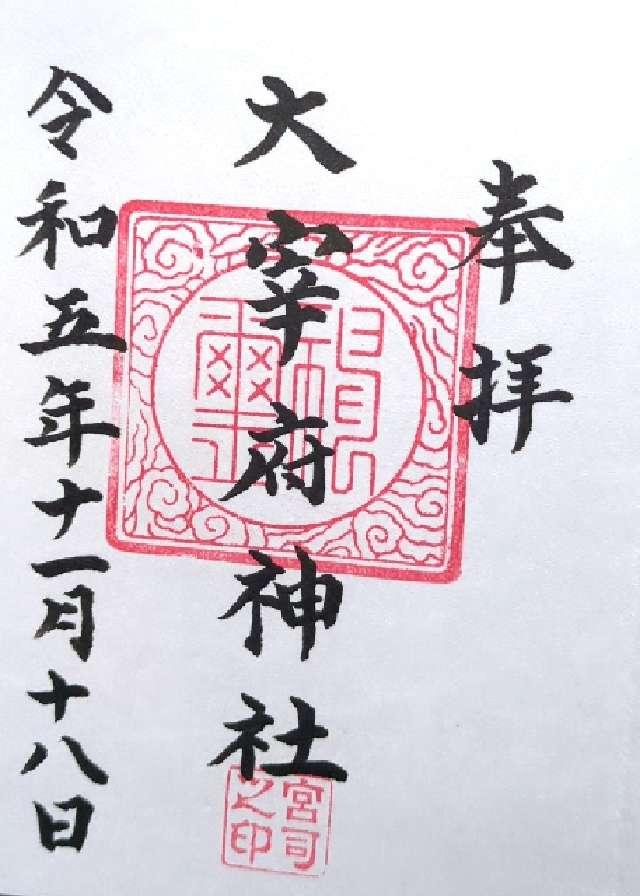 奉拝
大宰府神社
令和五年十一月十八日
宮司之印